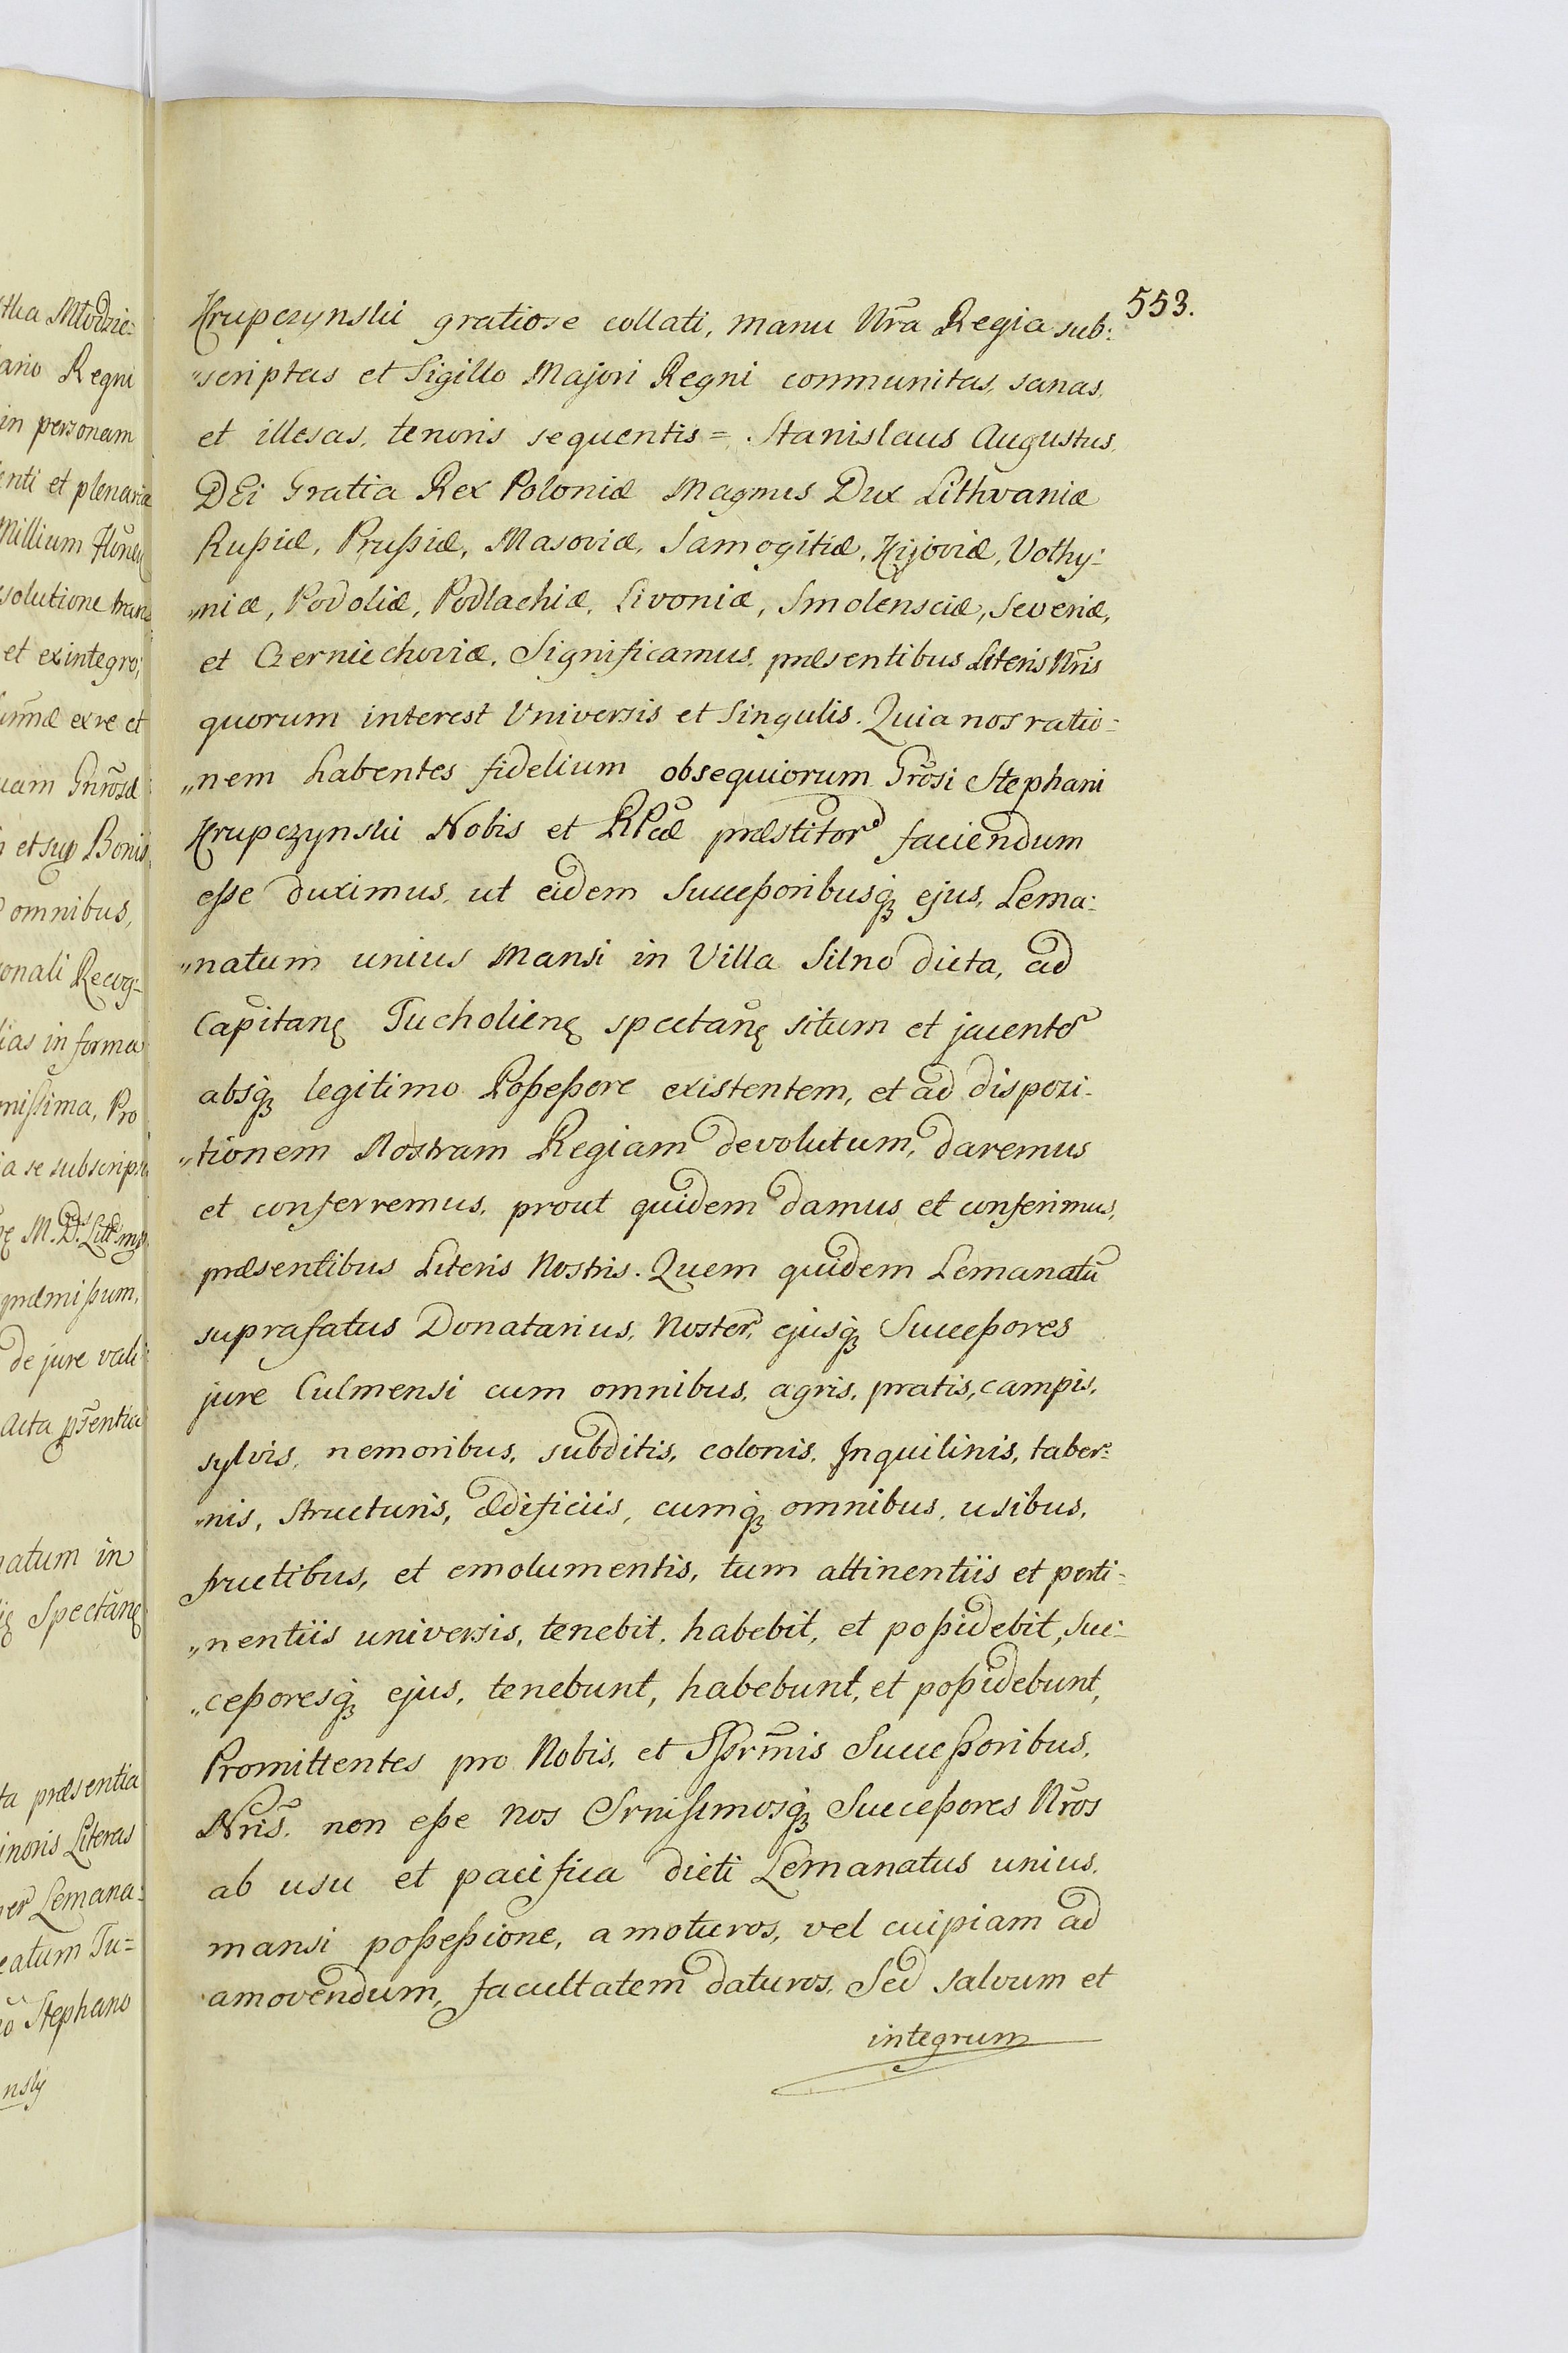 553.
Krupczynski gratiose collati, manu Nr̃a Regia sub:
"scriptas et Sigillo Majori Regni communitas, sanas,
et illesas, tenoris sequentis = Stanislaus Augustus
DEi Gratia Rex Poloniæ Magnus Dux Lithvaniæ
Rußiæ, Prußiæ, Masoviæ, Samogitiæ, Kijoviæ, Volhy:
„niæ, Podoliæ, Podlachiæ, Livoniæ, Smolensciæ, Severiæ,
et Czerniechoviæ. Significamus præsentibus Literis Nr̃is
quorum interest Universis et Singulis. Quia nos ratio:
„nem habentes fidelium obsequiorum Gr̃osi Stephani
Krupczynski Nobis et RPcæ præstitor̃ faciendum
eße duximus, ut eidem Succeßoribusq₃ ejus, Lema:
„natum unius Mansi in Villa Silno dicta, ad
Capitanę Tucholienę spectanę situm et jacentẽ
absq₃ legitimo Poßeßore existentem, et ad disposi:
„tionem Nostram Regiam devolutum, daremus
et conferremus, prout quidem damus et conferimus,
præsentibus Literis Nostris. Quem quidem Lemanatũ
suprafatus Donatarius, Noster, ejusq₃ Succeßores
jure Culmensi cum omnibus, agris, pratis, campis,
sylvis, nemoribus, subditis, colonis, Inquilinis, taber:
„nis, structuris, ædificiis, cumq₃ omnibus, usibus,
fructibus, et emolumentis, tum attinentiis et perti:
„nentiis universis, tenebit, habebit, et poßidebit, Suc:
„ceßoresq₃ ejus, tenebunt, habebunt, et poßidebunt,
Promittentes pro Nobis, et Sßrm̃is Succeßoribus,
Nr̃is, non eße nos Srnißimosq₃ Succeßores Nr̃os
ab usu et pacifica dicti Lemanatus unius,
mansi poßeßione, amoturos, vel cuipiam ad
amovendum, facultatem daturos. Sed salvum et
integrum